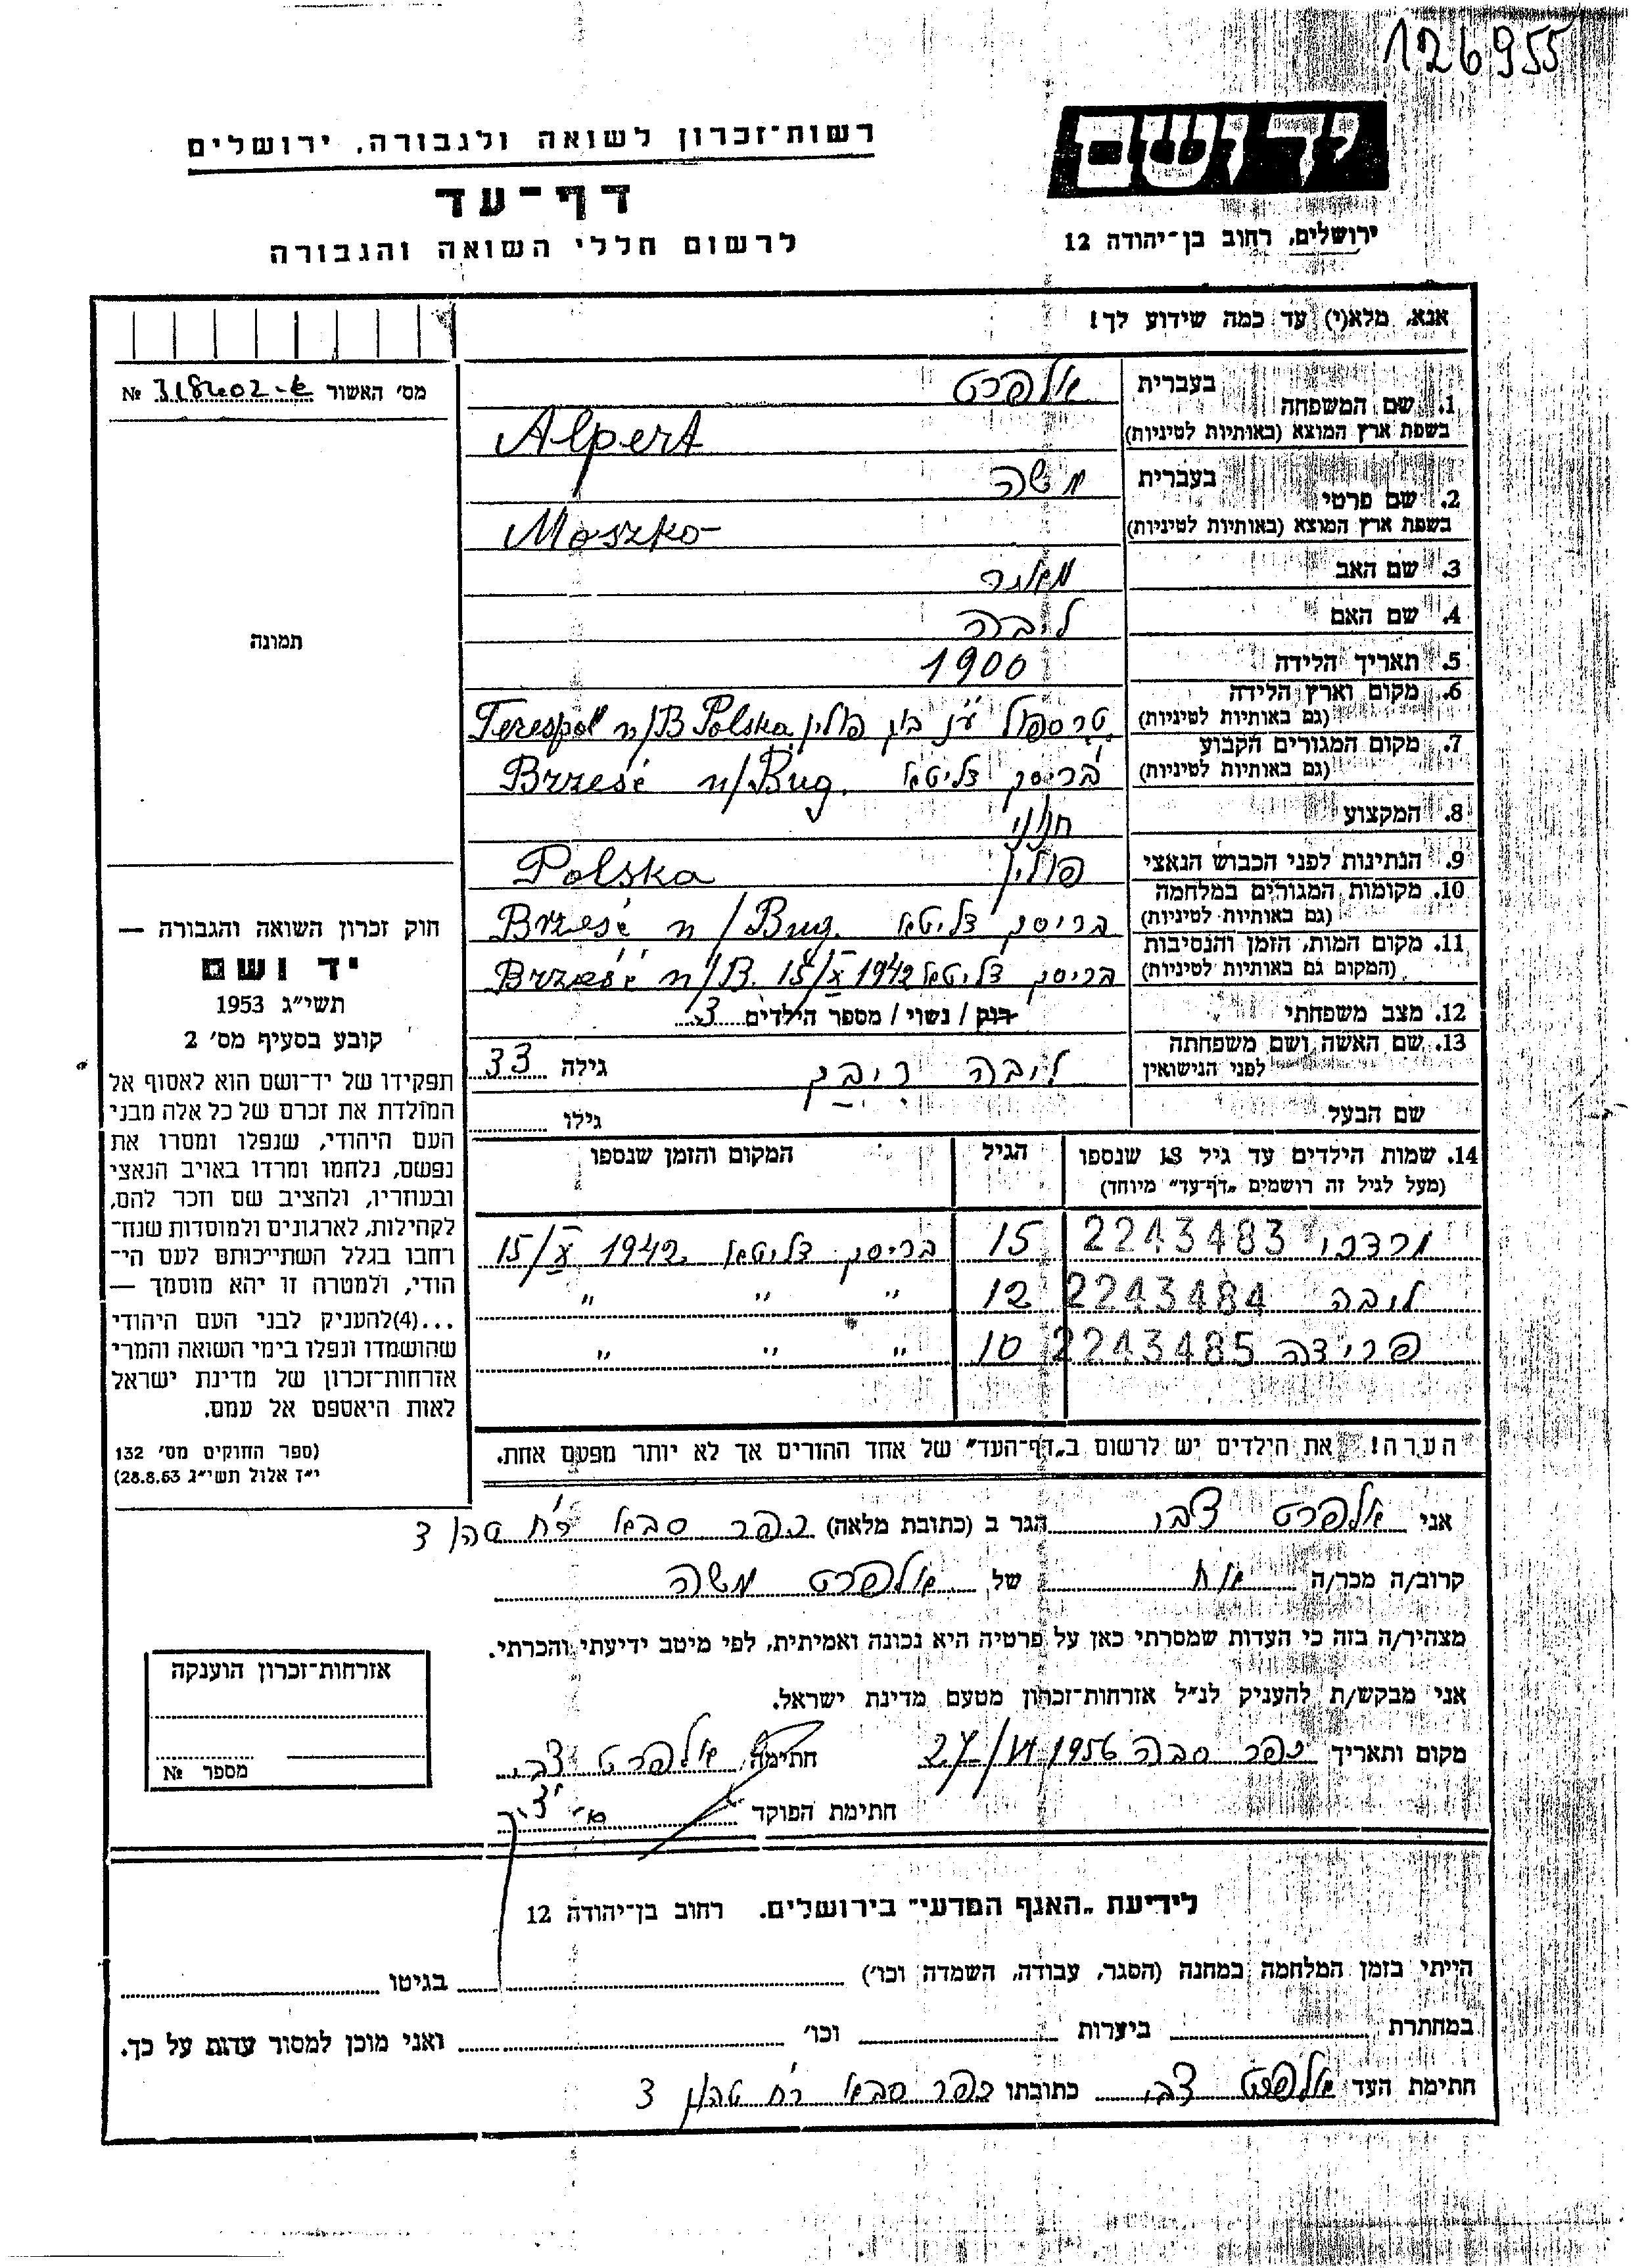 126955
יד ושם
ירושלים, רחוב בן־יהודה 12
רשות־זכרון לשואה ולגבורה, ירושלים
דף־עד
לרשום חללי השואה והגבורה
אנא, מלא(י) עד כמה שידוע לך!
מס׳ האשור 318402 №
תמונה
1. שם המשפחה בעברית אלפרט
בשפת ארץ המוצא (באותיות לטיניות) Alpert
2. שם פרטי בעברית משה
בשפת ארץ המוצא (באותיות לטיניות) Moszko
3. שם האב מאיר
4. שם האם ליבה
5. תאריך הלידה 1900
6. מקום וארץ הלידה
(גם באותיות לטיניות) טרספול ע״נ בוג פולין Terespol n/B Polska
7. מקום המגורים הקבוע
(גם באותיות לטיניות) בריסק דליטא Brześć n/Bug.
8. המקצוע חנוני
9. הנתינות לפני הכבוש הנאצי פולין Polska
10. מקומות המגורים במלחמה
(גם באותיות לטיניות) בריסק דליטא Brześć n/Bug.
11. מקום המות, הזמן והנסיבות
(המקום גם באותיות לטיניות) בריסק דליטא 1942 15/X Brześć n/B.
12. מצב משפחתי רווק / נשוי / מספר הילדים 3
13. שם האשה ושם משפחתה
לפני הנישואין ליבה גילה 33
שם הבעל גילו
14. שמות הילדים עד גיל 18 שנספו הגיל המקום והזמן שנספו
(מעל לגיל זה רושמים „דף־עד״ מיוחד)
מרדכי 2243483 15 בריסק דליטא 1942 15/X
ליבה 2243484 12 " " "
פרידה 2243485 10 " " "
הערה! את הילדים יש לרשום ב„דף־העד״ של אחד ההורים אך לא יותר מפעם אחת.
חוק זכרון השואה והגבורה —
יד ושם
תשי״ג 1953
קובע בסעיף מס׳ 2
תפקידו של יד־ושם הוא לאסוף אל
המולדת את זכרם של כל אלה מבני
העם היהודי, שנפלו ומסרו את
נפשם, נלחמו ומרדו באויב הנאצי
ובעוזריו, ולהציב שם וזכר להם,
לקהילות, לארגונים ולמוסדות שנח־
רחבו בגלל השתייכותם לעם הי־
הודי, ולמטרה זו יהא מוסמך —
...(4) להעניק לבני העם היהודי
שהושמדו ונפלו בימי השואה והמרי
אזרחות־זכרון של מדינת ישראל
לאות היאספם אל עמם.
(ספר החוקים מס׳ 132
י״ז אלול תשי״ג 28.8.53)
אני אלפרט צבי הגר ב (כתובת מלאה) כפר סבא רח׳ 3
קרוב/ה מכר/ה אח של אלפרט משה
מצהיר/ה בזה כי העדות שמסרתי כאן על פרטיה היא נכונה ואמיתית, לפי מיטב ידיעתי והכרתי.
אני מבקש/ת להעניק לנ״ל אזרחות־זכרון מטעם מדינת ישראל.
מקום ותאריך כפר סבה 27/VI 1956 חתימה אלפרט צבי
חתימת הפוקד
אזרחות־זכרון הוענקה
מספר №
לידיעת „האגף המדעי״ בירושלים. רחוב בן־יהודה 12
הייתי בזמן המלחמה במחנה (הסגר, עבודה, השמדה וכו׳) בגיטו
במחתרת ביערות וכו׳ ואני מוכן למסור עדות על כך.
חתימת העד אלפרט צבי כתובתו כפר סבא רח׳ 3